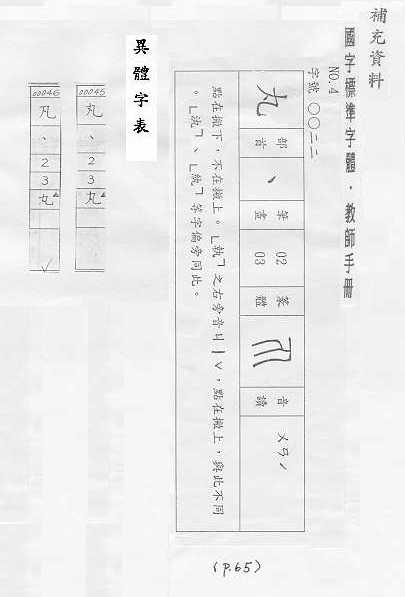 補充資料
國字標準字體．教師手冊
NO.4
字號 〇〇二二
丸 部首 丶 筆畫 02 03 篆體 音讀 ㄨㄢˊ
點在撇下，不在撇上。「執」之右旁音ㄐㄧˇ，點在撇上，與此不同
。「汍」、「紈」等字偏旁同此。
異體字表
00045
丸
丶
2
3
丸
00046
凡
丶
2
3
丸
(P.65)